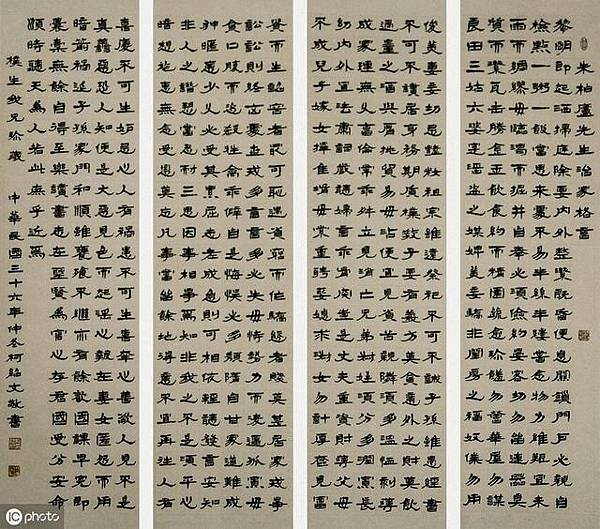 朱柏廬先生治家格言
黎明即起洒掃庭除要內外整潔既昏便息關鎖門戶必親自
檢點一粥一飯當思來處不易半絲半縷當念物力維艱宜未
雨而綢繆毋臨渴而掘井自奉必須儉約宴客切勿留連器具
質而潔瓦缶勝金玉飲食約而精園蔬愈珍饈勿營華屋勿謀
良田三姑六婆實淫盜之媒婢美妾嬌非閨房之福奴僕勿用
俊美妻妾切忌豔妝祖宗雖遠祭祀不可不誠子孫雖愚經書
不可不讀居身務期質樸教子要有義方莫貪意外之財莫飲
過量之酒與肩挑貿易毋佔便宜見貧苦親鄰須多溫恤刻薄
成家理無久享倫常乖舛立見消亡兄弟叔姪須分多潤寡長
幼內外宜法肅辭嚴聽婦言乖骨肉豈是丈夫重資財薄父母
不成兒子嫁女擇佳婿毋索重聘娶媳求淑女勿計厚奩見富
貴而生諂容者最可恥遇貧而作驕態者賤莫甚居家戒爭
訟訟則終凶處世戒多言言多必失毋恃勢力而凌逼孤寡毋
貪口腹而恣殺牲禽乖僻自是悔悞必多頹惰自甘家道難成
狎暱惡少久必受其累屈志老成急則可相依輕聽發言安知
非人之譖愬當忍耐三思因事相爭安知非我之不是須平心
暗想施惠勿念受恩莫忘凡事當留餘地得意不宜再往人有
喜慶不可生妒忌心人有禍患不可生喜幸心善欲人見不是
真善惡恐人知便是大惡見色而起淫心報在妻女匿怨而用
暗箭禍延子孫家門和順雖饔飧不繼亦有餘歡國課早完即
囊橐無餘自得至樂讀書志在聖賢為官心存君國守分安命
順時聽天為人若此庶乎近焉
樸生我兄珍藏
中華民國三十六年仲冬柯紹文敬書
iC photo